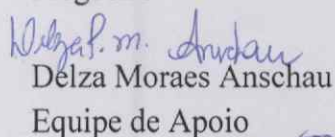 Delza P. M. Anschau
Delza Moraes Anschau
Equipe de Apoio